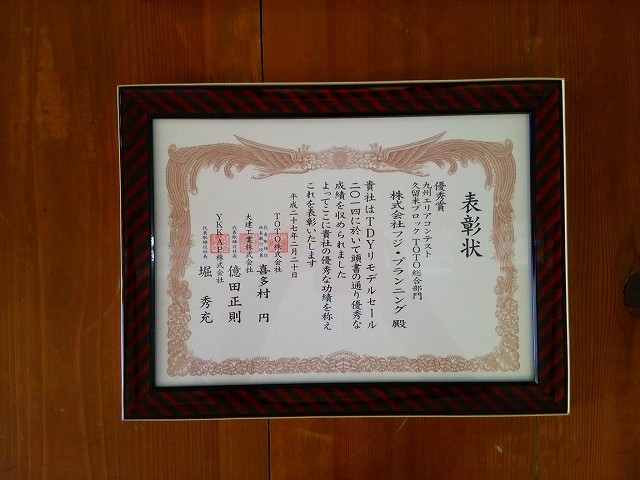 表彰状
優秀賞
九州エリアコンテスト
久留米ブロック TOTO総合部門
株式会社フジ・プランニング 殿
貴社はTDYリモデルセール
二〇一四に於いて頭書の通り優秀な
成績を収められました
よってここに貴社の優秀な功績を称え
これを表彰いたします
平成二十七年二月二十日
TOTO株式会社
喜多村 円
大建工業株式会社
代表取締役社長
億田正則
YKKAP株式会社
代表取締役社長
堀 秀充